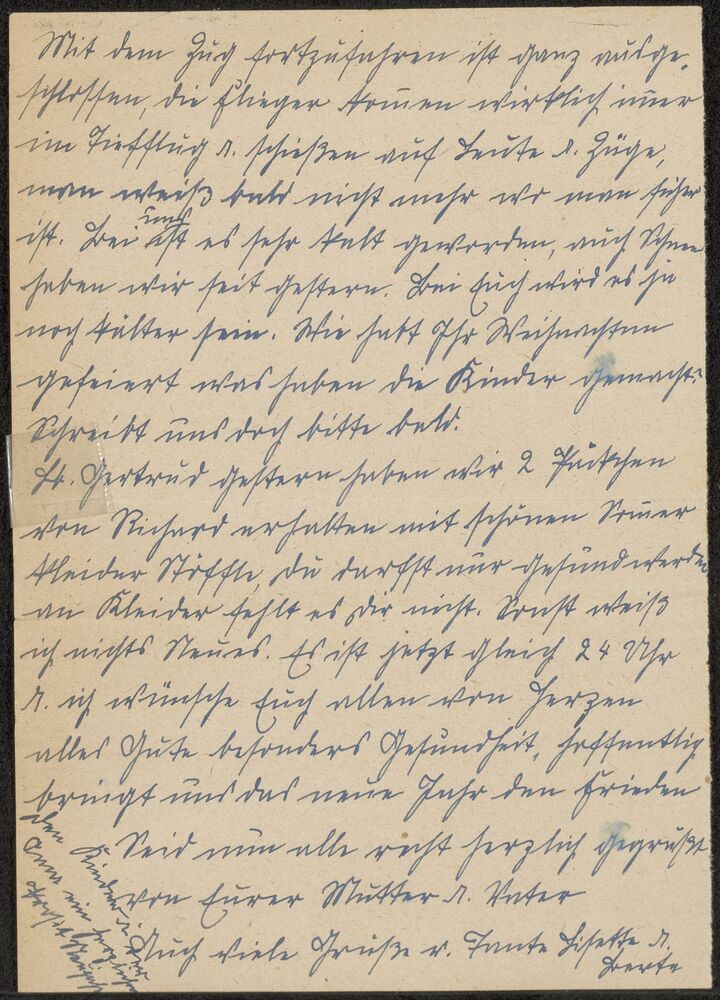 Mit dem Zug fortzufahren ist ganz ausge-
schlossen, die Flieger kom̅en wirklich im̅er
im Tiefflug u. schießen auf Leute u. Züge,
man weiß bald nicht mehr wo man sicher
ist. Bei uns ist es sehr kalt geworden, auch Schnee
haben wir seit gestern. Bei Euch wird es ja
noch kälter sein. Wie habt Ihr Weihnachten
gefeiert was haben die Kinder gemacht?
Schreibt uns doch bitte bald.
Lb. Gertrud gestern haben wir 2 Päckchen
von Richard erhalten mit schönen Som̅er
kleider Stoffle, du darfst nur gesund werden
an Kleider fehlt es dir nicht. Sonst weiß
ich nichts Neues. Es ist jetzt gleich 24 Uhr
u. ich wünsche Euch allen von Herzen
alles Gute besonders Gesundheit, hoffentlich
bringt uns das neue Jahr den Frieden
Seid nun alle recht herzlich gegrüßt
von Eurer Mutter u. Vater
Auch viele Grüße v. Tante Lisette u.
Berta
den Kinder u.
Anna ein herzliches